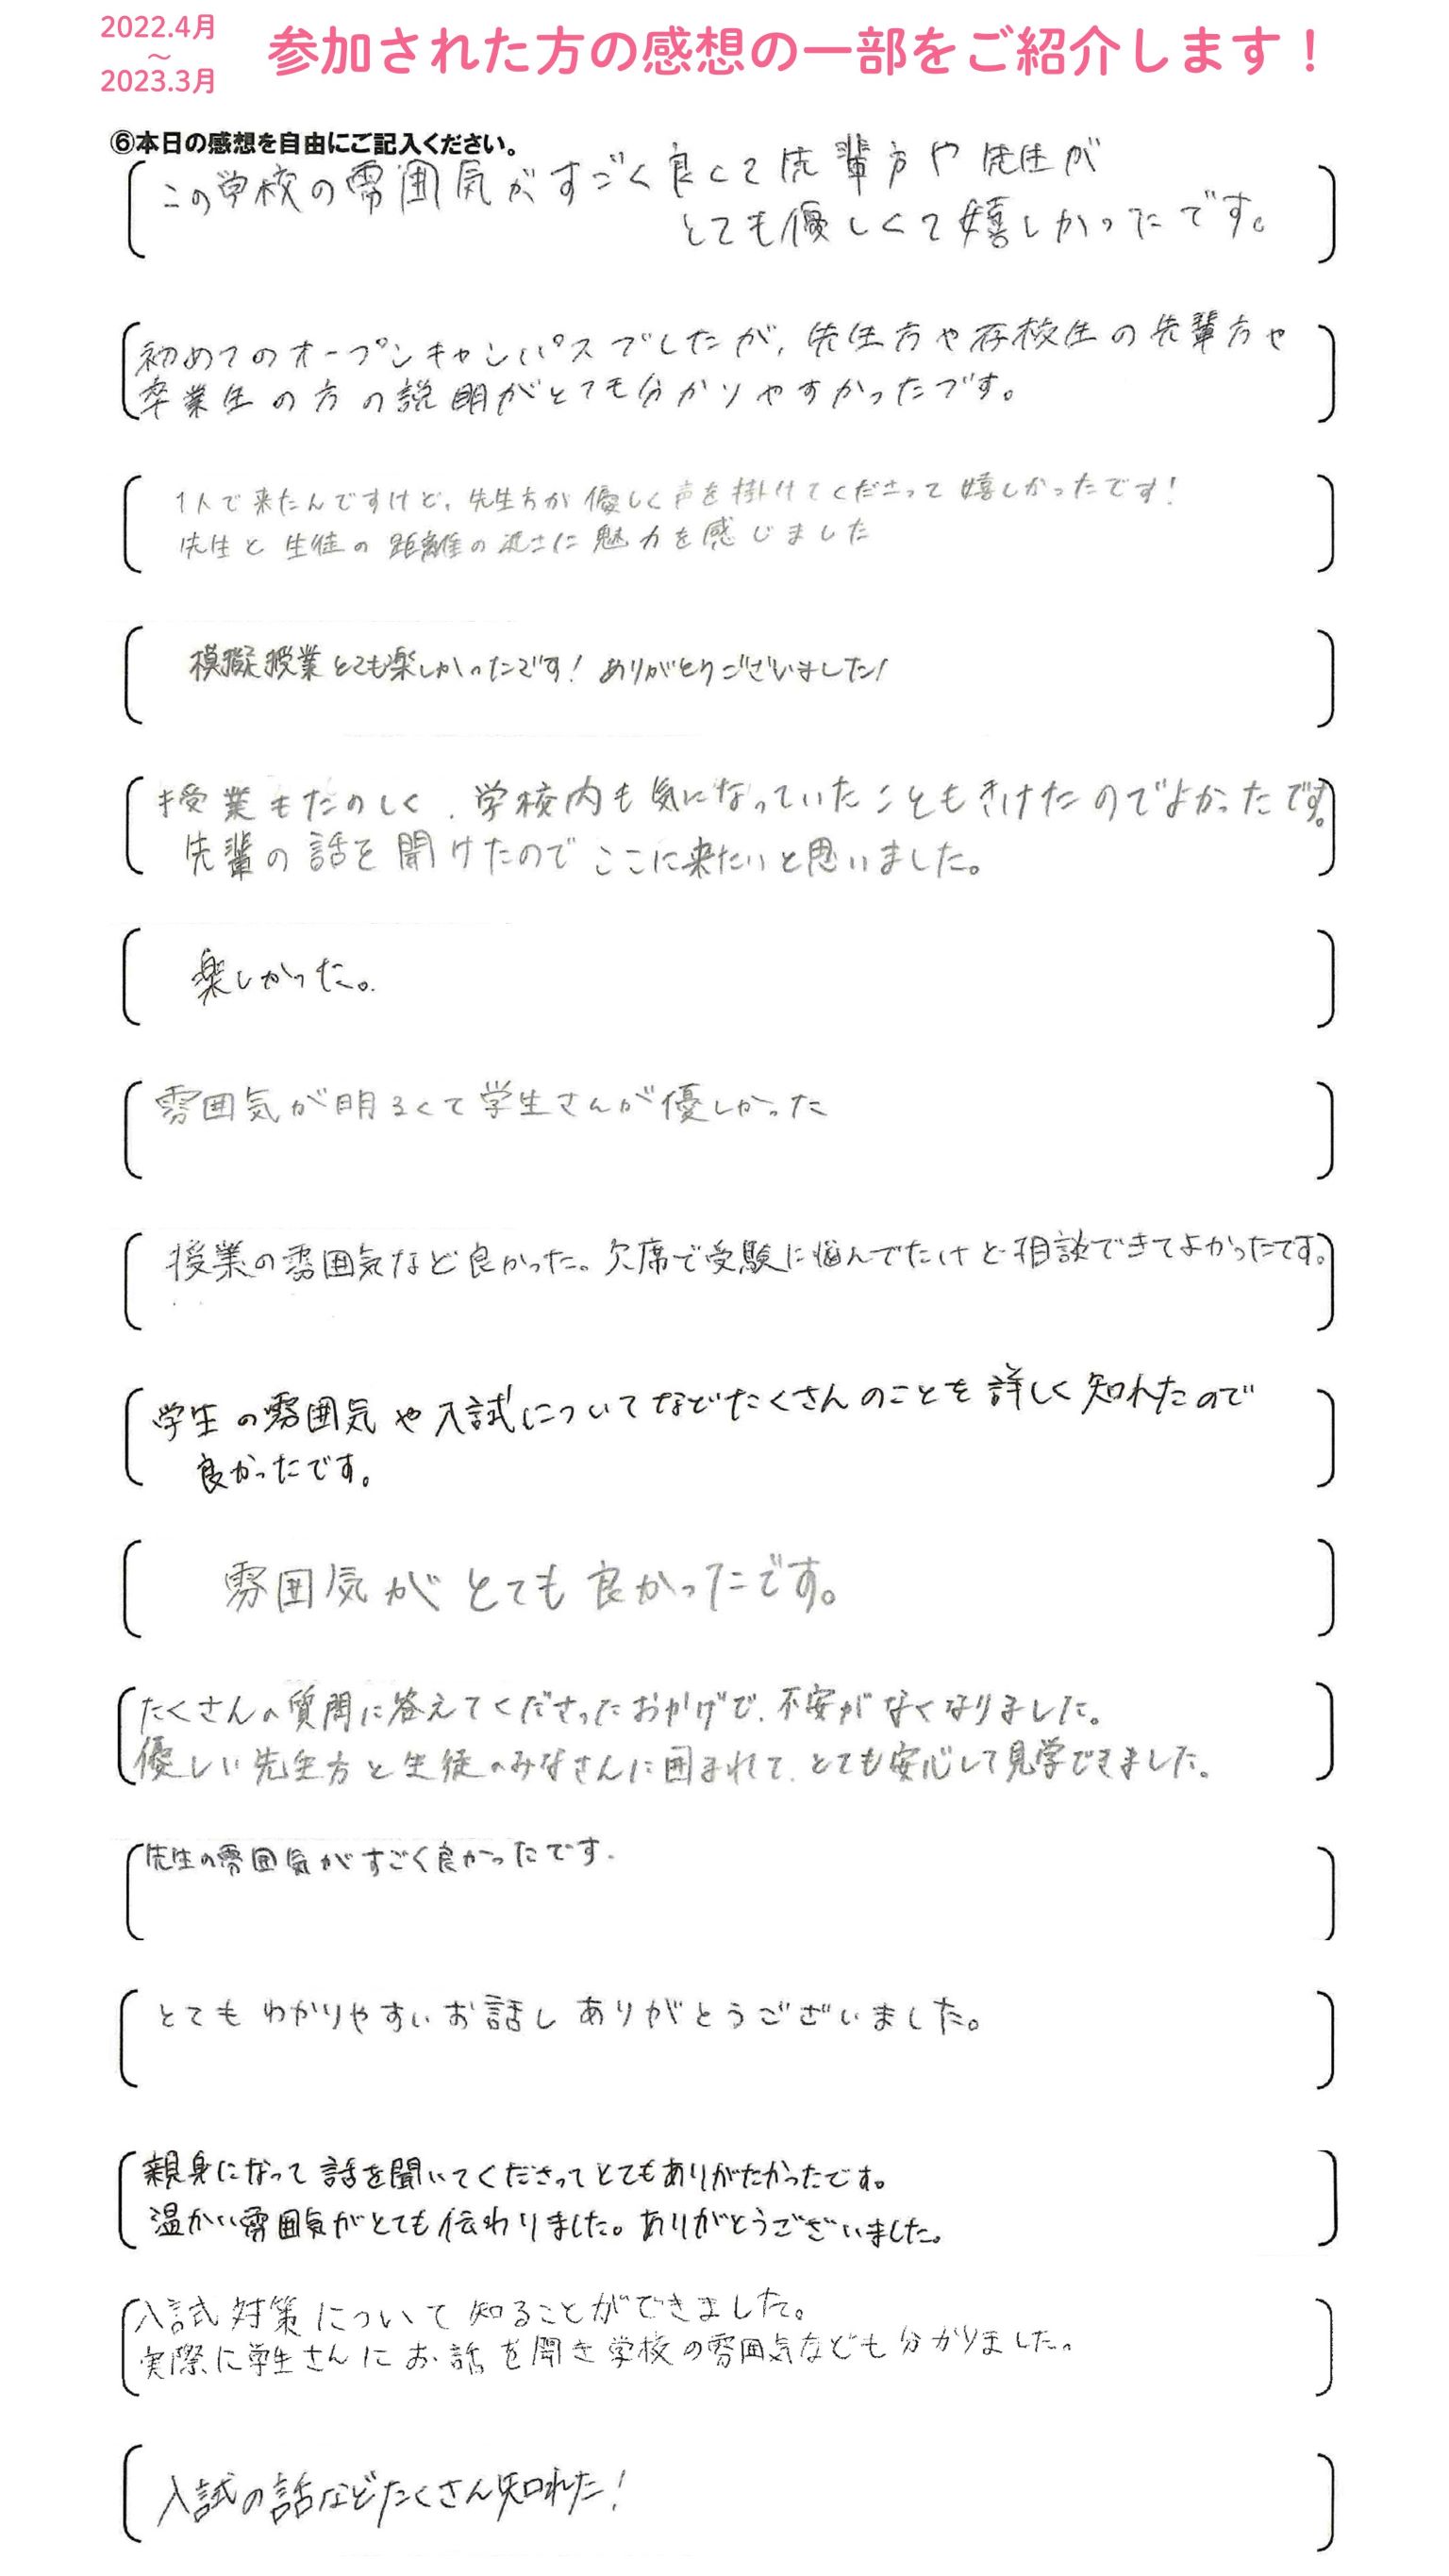 2022.4月
～
2023.3月
参加された方の感想の一部をご紹介します！
⑥本日の感想を自由にご記入ください。
この学校の雰囲気がすごく良くて先輩方や先生が
とても優しくて嬉しかったです。
初めてのオープンキャンパスでしたが、先生方や在校生の先輩方や
卒業生の方の説明がとても分かりやすかったです。
1人で来たんですけど、先生方が優しく声を掛けてくださって嬉しかったです！
先生と生徒の距離の近さに魅力を感じました
模擬授業とても楽しかったです！ありがとうございました！
授業もたのしく、学校内も気になっていたこともきけたのでよかったです。
先輩の話を聞けたのでここに来たいと思いました。
楽しかった。
雰囲気が明るくて学生さんが優しかった
授業の雰囲気など良かった。欠席で受験に悩んでたけど相談できてよかったです。
学生の雰囲気や入試についてなどたくさんのことを詳しく知れたので
良かったです。
雰囲気がとても良かったです。
たくさんの質問に答えてくださったおかげで、不安がなくなりました。
優しい先生方と生徒のみなさんに囲まれて、とても安心して見学できました。
先生の雰囲気がすごく良かったです.
とてもわかりやすいお話しありがとうございました。
親身になって話を聞いてくださってとてもありがたかったです。
温かい雰囲気がとても伝わりました。ありがとうございました。
入試対策について知ることができました。
実際に学生さんにお話を聞き学校の雰囲気なども分かりました。
入試の話などたくさん知れた！